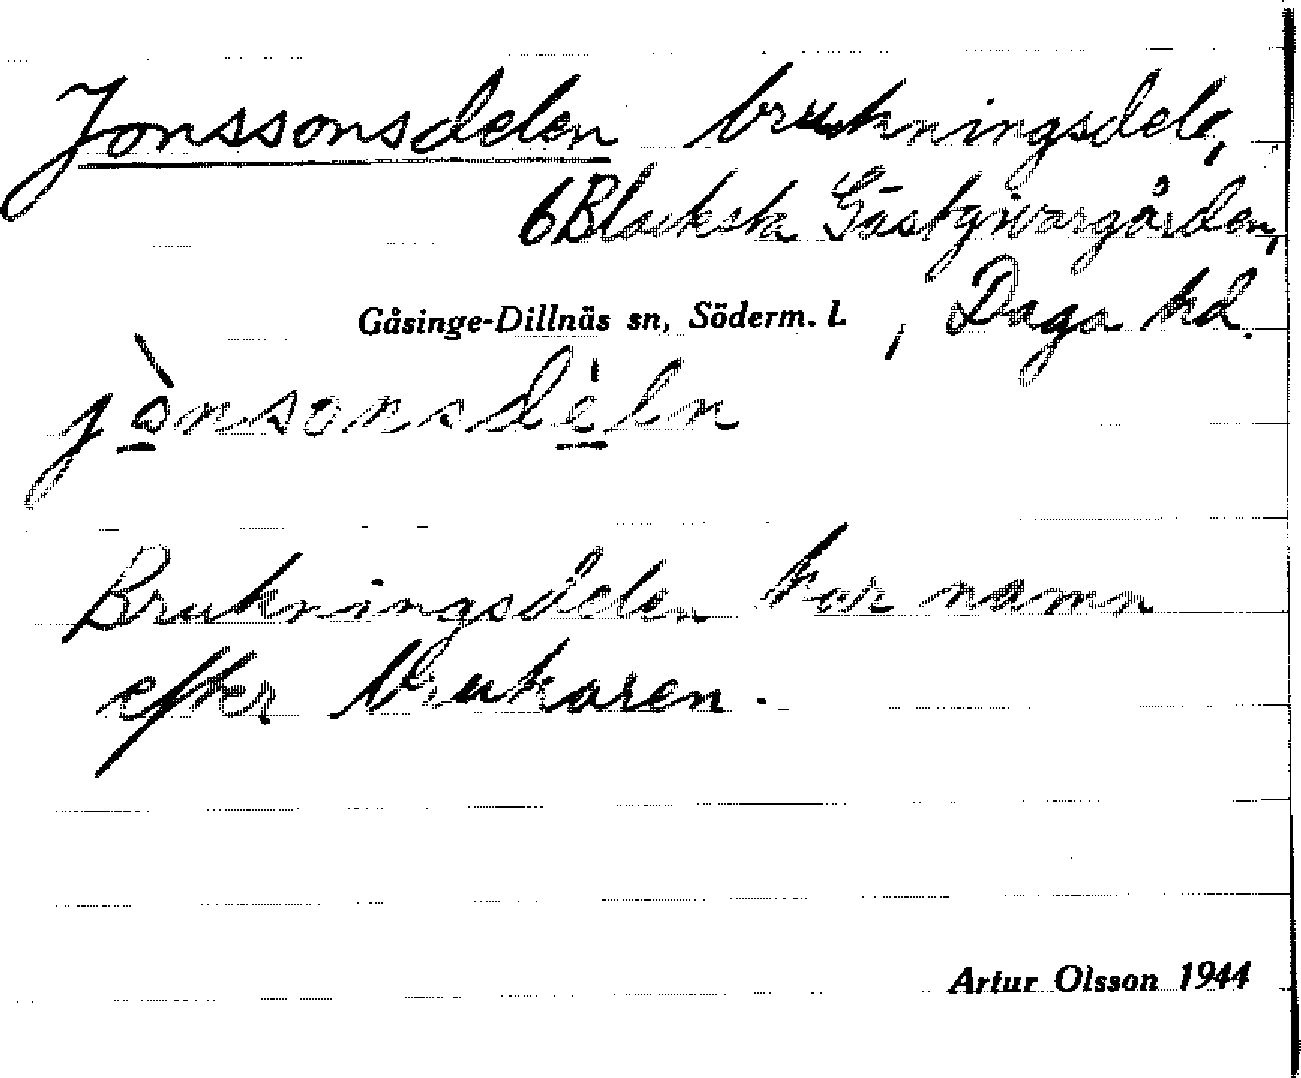 Jonssonsdelen brukningsdel,
6 Blacksta Gästgivargården,
Gåsinge-Dillnäs sn, Söderm. L , Daga hd.
jònsonsdeln
Brukningsdelen har namn
efter brukaren.
Artur Olsson 1944